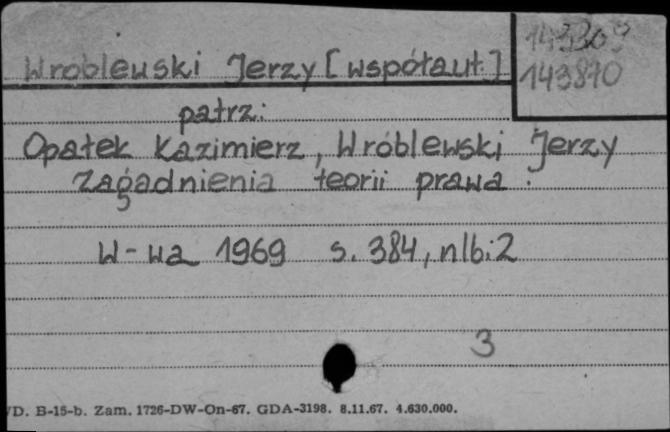 143809
143810
Wroblewski Jerzy [współaut.]
patrz:
Opałek Kazimierz, Wróblewski Jerzy
Zagadnienia teorii prawa.
W-wa 1969 s. 384, nlb. 2
3
D. B-15-b. Zam. 1726-DW-On-67. GDA-3198. 8.11.67. 4.630.000.